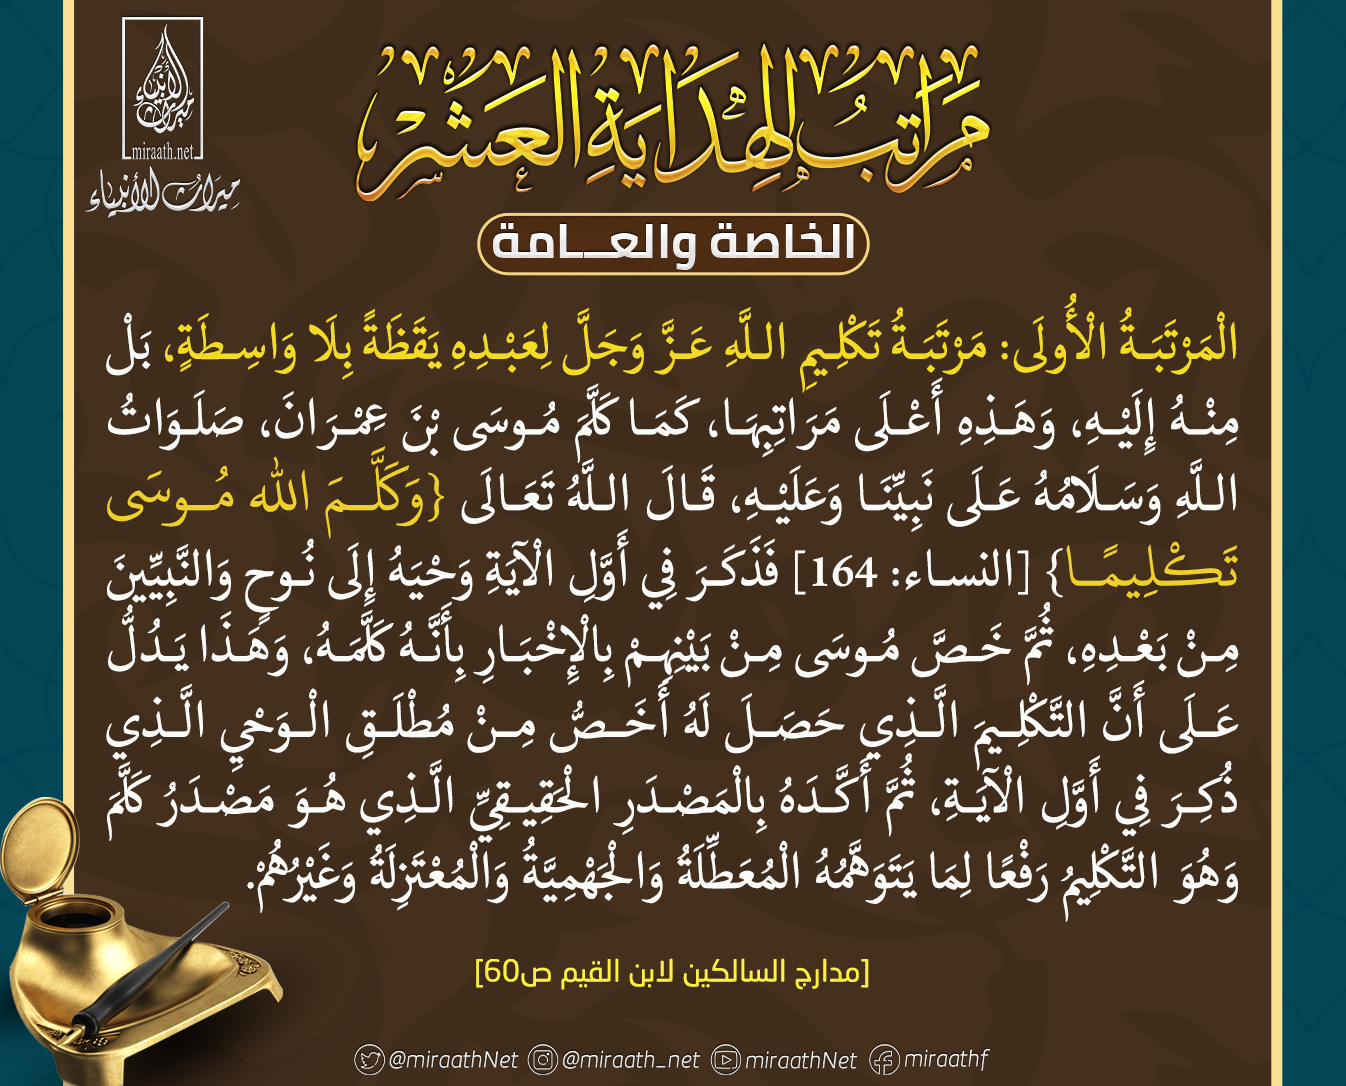 miraath.net
ميراث الأنبياء
مَرَاتِبُ الهِدَايَةِ العَشْر
الخاصة والعـــامة
الْمَرْتَبَـةُ الْأُولَى: مَرْتَبَـةُ تَكْلِـيمِ اللَّهِ عَـزَّ وَجَلَّ لِعَبْـدِهِ يَقَظَةً بِلَا وَاسِـطَةٍ، بَلْ
مِنْـهُ إِلَيْـهِ، وَهَـذِهِ أَعْـلَى مَرَاتِبِهَـا، كَمَـا كَلَّمَ مُـوسَى بْنَ عِمْـرَانَ، صَلَـوَاتُ
اللَّهِ وَسَـلَامُهُ عَـلَى نَبِيِّنَـا وَعَلَيْـهِ، قَـالَ اللَّهُ تَعَـالَى {وَكَلَّـمَ الله مُـوسَى
تَكْـلِيمًـا} [النسـاء: 164] فَذَكَـرَ فِي أَوَّلِ الْآيَةِ وَحْيَهُ إِلَى نُـوحٍ وَالنَّبِيِّينَ
مِـنْ بَعْـدِهِ، ثُمَّ خَـصَّ مُـوسَى مِـنْ بَيْنِهِـمْ بِالْإِخْبَـارِ بِأَنَّـهُ كَلَّمَـهُ، وَهَـذَا يَـدُلُّ
عَـلَى أَنَّ التَّكْلِـيمَ الَّـذِي حَصَـلَ لَهُ أَخَـصُّ مِـنْ مُطْلَـقِ الْـوَحْيِ الَّـذِي
ذُكِـرَ فِي أَوَّلِ الْآيَـةِ، ثُمَّ أَكَّـدَهُ بِالْمَصْـدَرِ الْحَقِيـقِيِّ الَّـذِي هُـوَ مَصْـدَرُ كَلَّمَ
وَهُوَ التَّكْلِيمُ رَفْعًا لِمَا يَتَوَهَّمُهُ الْمُعَطِّلَةُ وَالْجَهْمِيَّةُ وَالْمُعْتَزِلَةُ وَغَيْرُهُمْ.
[مدارج السالكين لابن القيم ص60]
@miraathNet @miraath_net miraathNet miraathf